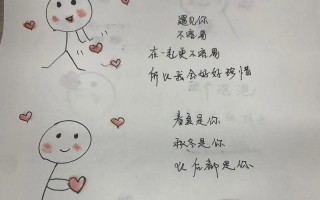 遇见你
不容易
在一起更不容易
所以我会好好珍惜
春夏是你
秋冬是你
以后都是你